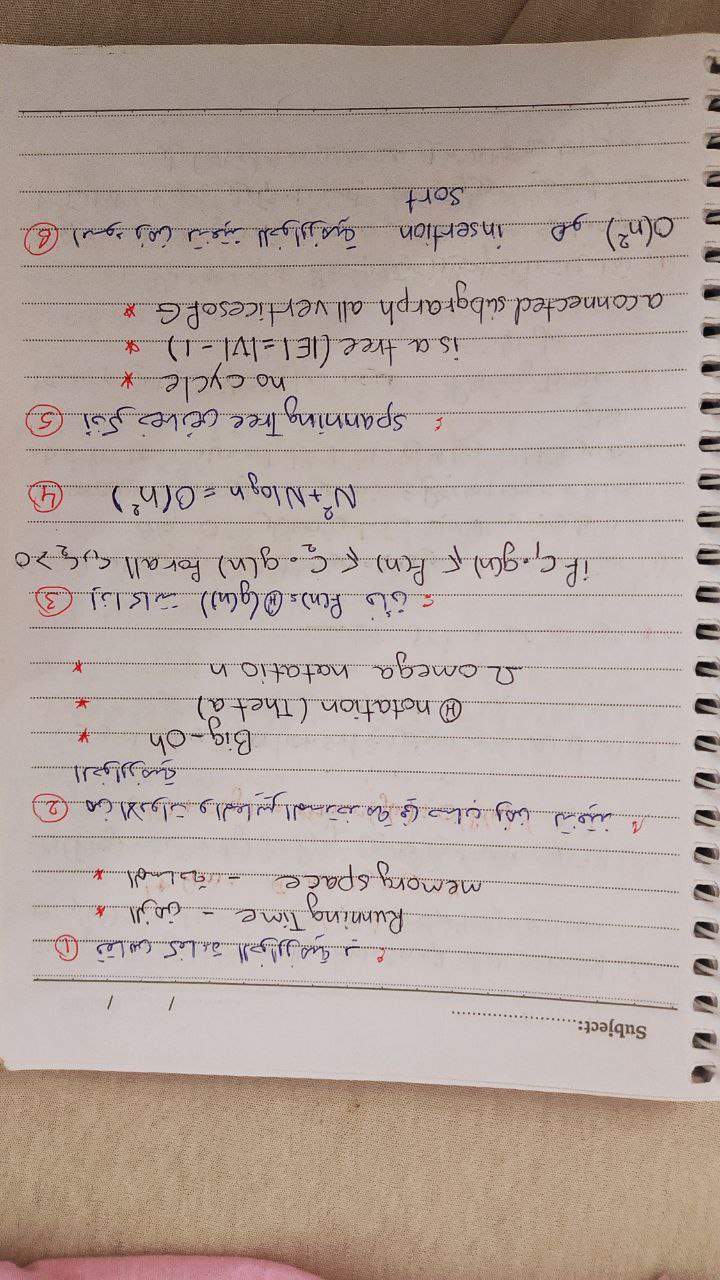 Subject:
/ /
① تقاس كفاءة الخوارزمية بـ
* الزمن - Running Time
* المساحة - memory space
② من الادوات والمعايير المستخدمة في حساب وقت تنفيذ
الخوارزمية
* Big-Oh
* Ⓗ notation (Theta)
* Ω omega natation
③ إذا كانت f(n)=Ⓗ(g(n)) فان
if C₁.g(n) ≤ f(n) ≤ C₂.g(n) for all c₁,c₂>0
④ N²+Nlogn = O(n²)
⑤ spanning Tree
* no cycle
* is a tree (|E|=|V|-1)
* a connected subgrarph all vertices of G
⑥ اسوء وقت لتنفيذ الخوارزمية insertion هو O(n²)
sort